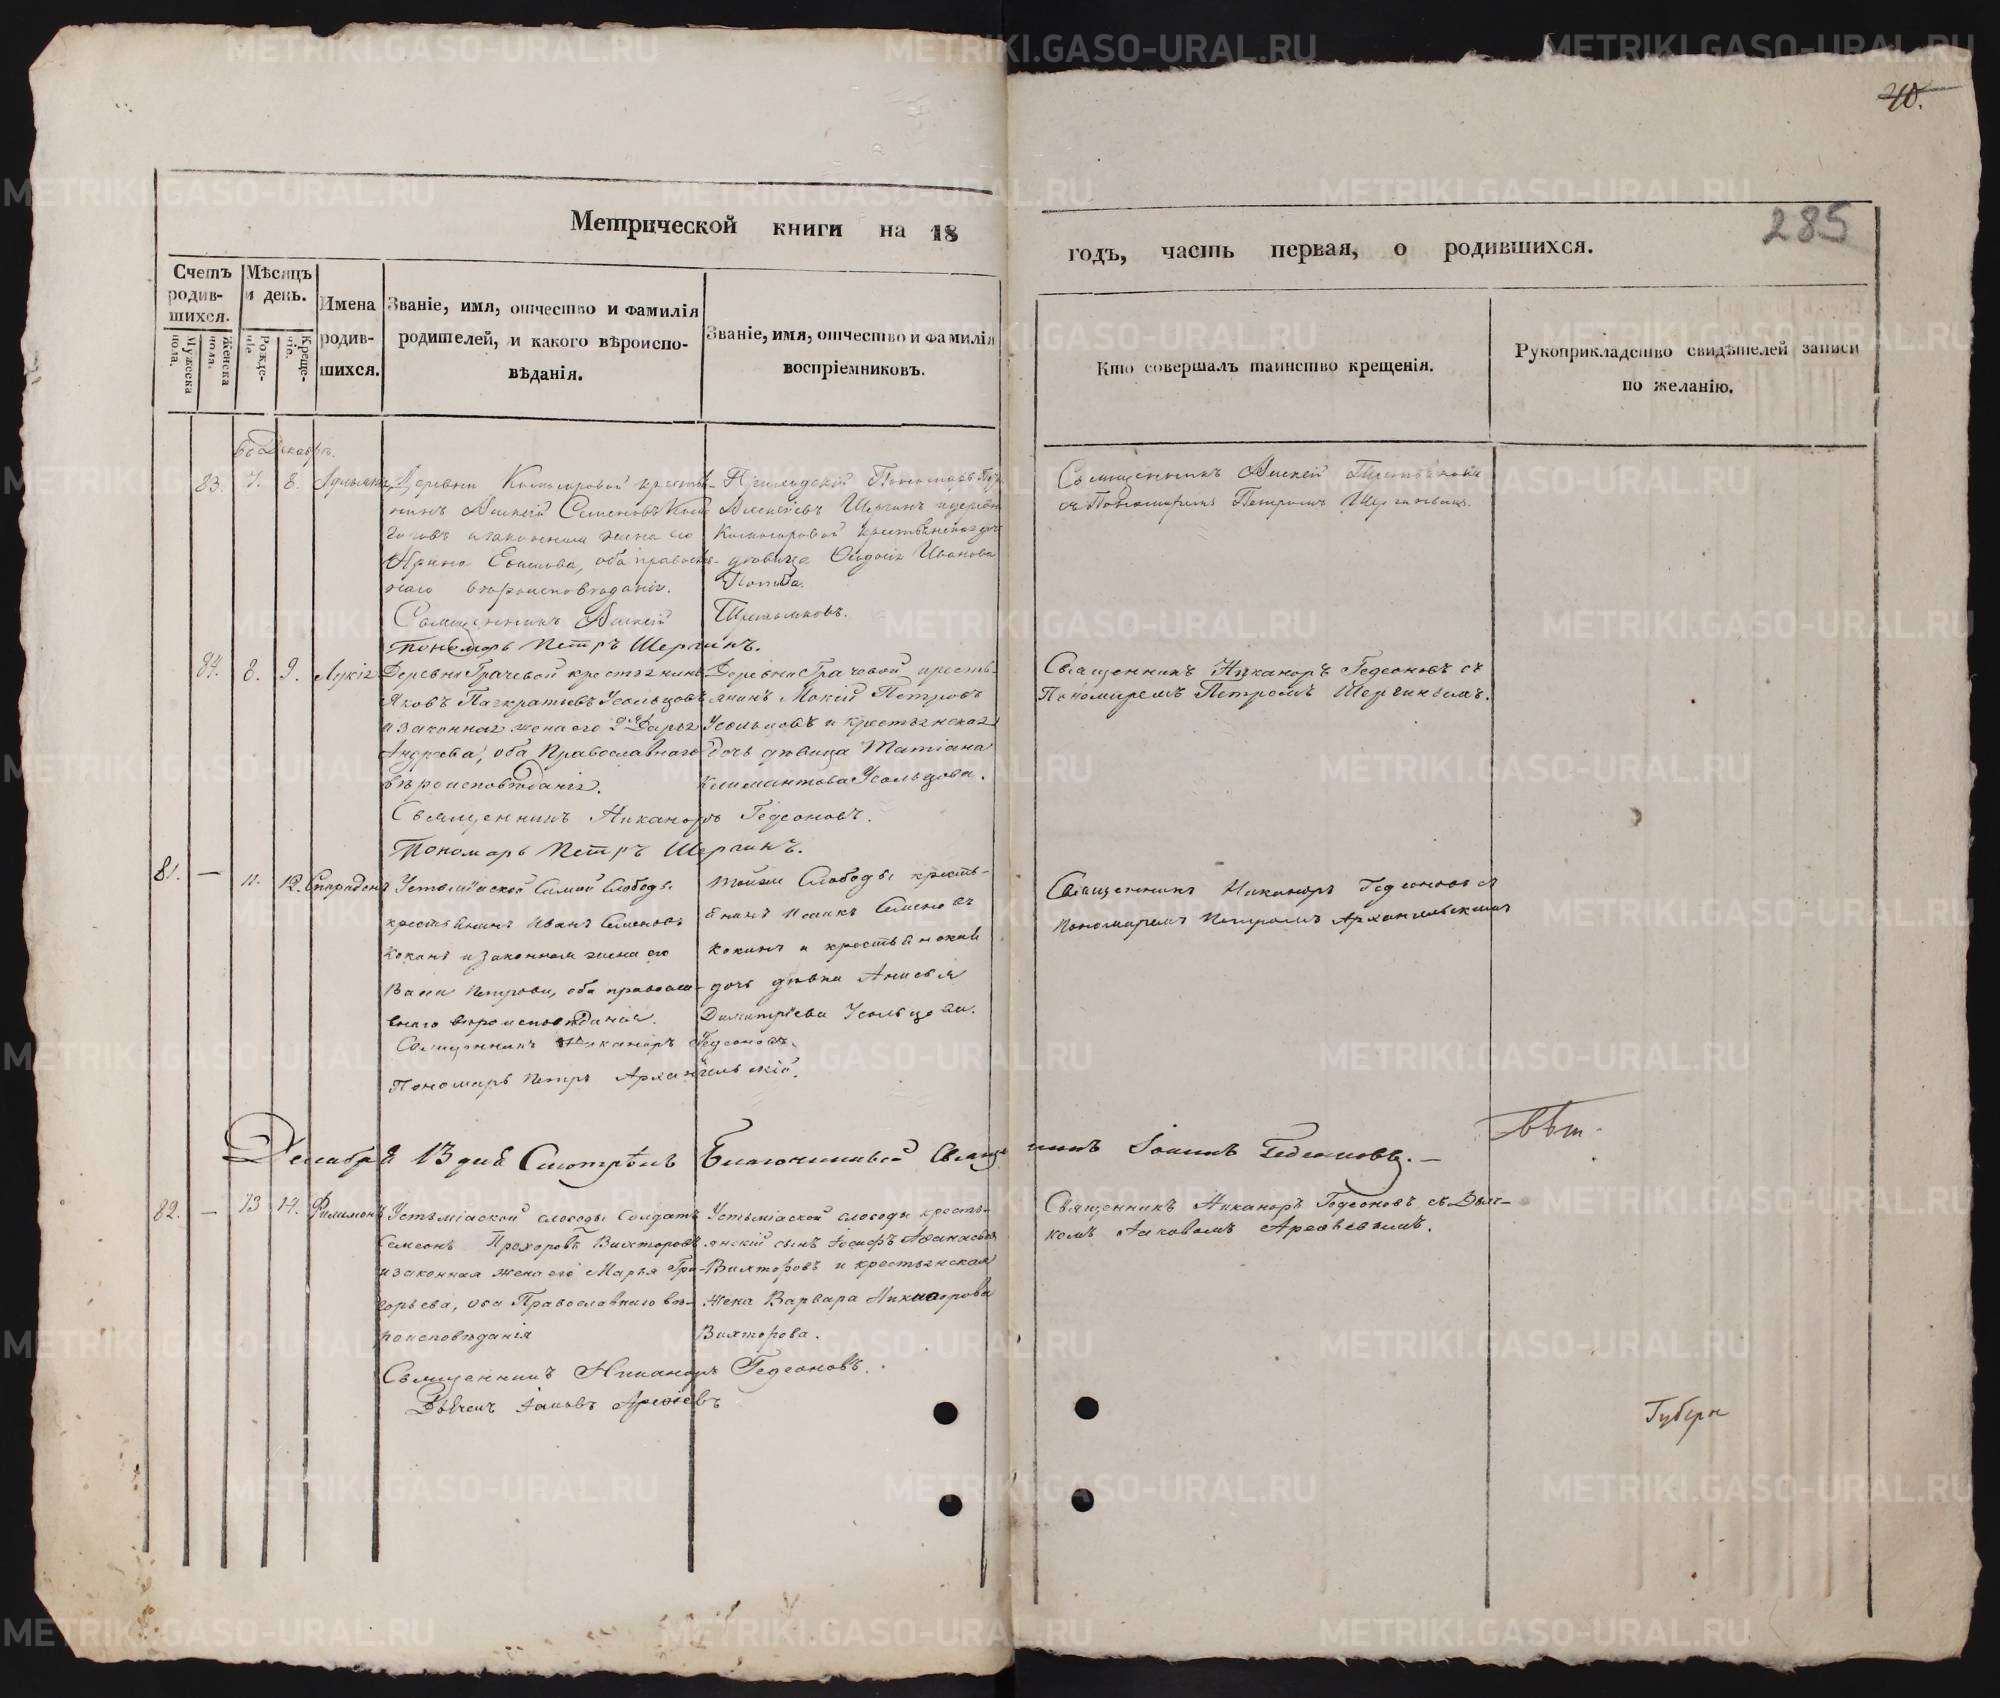 40.
285
Метрической книги на 18
годъ, часть первая, о родившихся.
Счетъ родив-шихся.
Мѣсяцъ и день.
Имена родив-шихся.
Званіе, имя, отчество и фамилія родителей, и какого вѣроиспо-вѣданія.
Званіе, имя, отчество и фамилія воспріемниковъ.
Кто совершалъ таинство крещенія.
Рукоприкладство свидѣтелей записи по желанію.
Мужеска пола.
Женска пола.
Рожде-ніе.
Креще-ніе.
въ Декабрѣ.
83. 7. 8.
Деревни Комогоровой крестья-
нинъ Алексій Семеновъ Комо
горовъ и законная жена его
Ирина Ефимова, оба правосла-
наго вѣроисповѣданія.
Священникъ Алексій Третьяковъ.
Пономарь Петръ Шергинъ.
Приходскій Пономарь Петръ
Алексіевъ Шергинъ и деревни
Комогоровой крестьянская дочь
дѣвица Ѳедосія Иванова
Попова.
Священникъ Алексій Третьяковъ
съ Пономаремъ Петромъ Шергинымъ.
84. 8. 9. Лукія
Деревни Грачевой крестьянинъ
Яковъ Панкратьевъ Усольцовъ
и законная жена его Дарья
Андреева, оба Православнаго
вѣроисповѣданія.
Священникъ Никаноръ Гедеоновъ.
Пономарь Петръ Шергинъ.
Деревни Грачевой кресть-
янинъ Мокій Петровъ
Усольцовъ и крестьянская
дочь дѣвица Татіана
Климантова Усольцова.
Священникъ Никаноръ Гедеоновъ съ
Пономаремъ Петромъ Шергинымъ.
81. — 11. 12. Спиридонъ
Устьміаской Самой Слободы
крестьянинъ Иванъ Семеновъ
Кокинъ и законная жена его
Васса Петрова, оба правосла-
внаго вѣроисповѣданія.
Священникъ Никаноръ Гедеоновъ.
Пономарь Петръ Архангельскій.
Тойже Слободы кресть-
янинъ Исаакъ Семеновъ
Кокинъ и крестьянская
дочь дѣвка Анисья
Димитріева Усольцова.
Священникъ Никаноръ Гедеоновъ съ
Пономаремъ Петромъ Архангельскимъ
Декабря 13 дня Смотрѣлъ Благочинный Священникъ Іоаннъ Гедеоновъ. —
вѣт.
82. — 13 14. Филимонъ
Устьміаской слободы Солдатъ
Самсонъ Прохоровъ Вихторовъ
и законная жена его Марья Гри-
горьева, оба Православнаго вѣ-
роисповѣданія
Священникъ Никаноръ Гедеоновъ.
Дьячекъ Іаковъ Арефьевъ
Устьміаской слободы кресть-
янскій сынъ Іосифъ Аѳанасьевъ
Вихторовъ и крестьянская
жена Варвара Никифорова
Вихторова.
Священникъ Никаноръ Гедеоновъ съ Дьяч-
комъ Іаковомъ Арефьевымъ.
Губерн